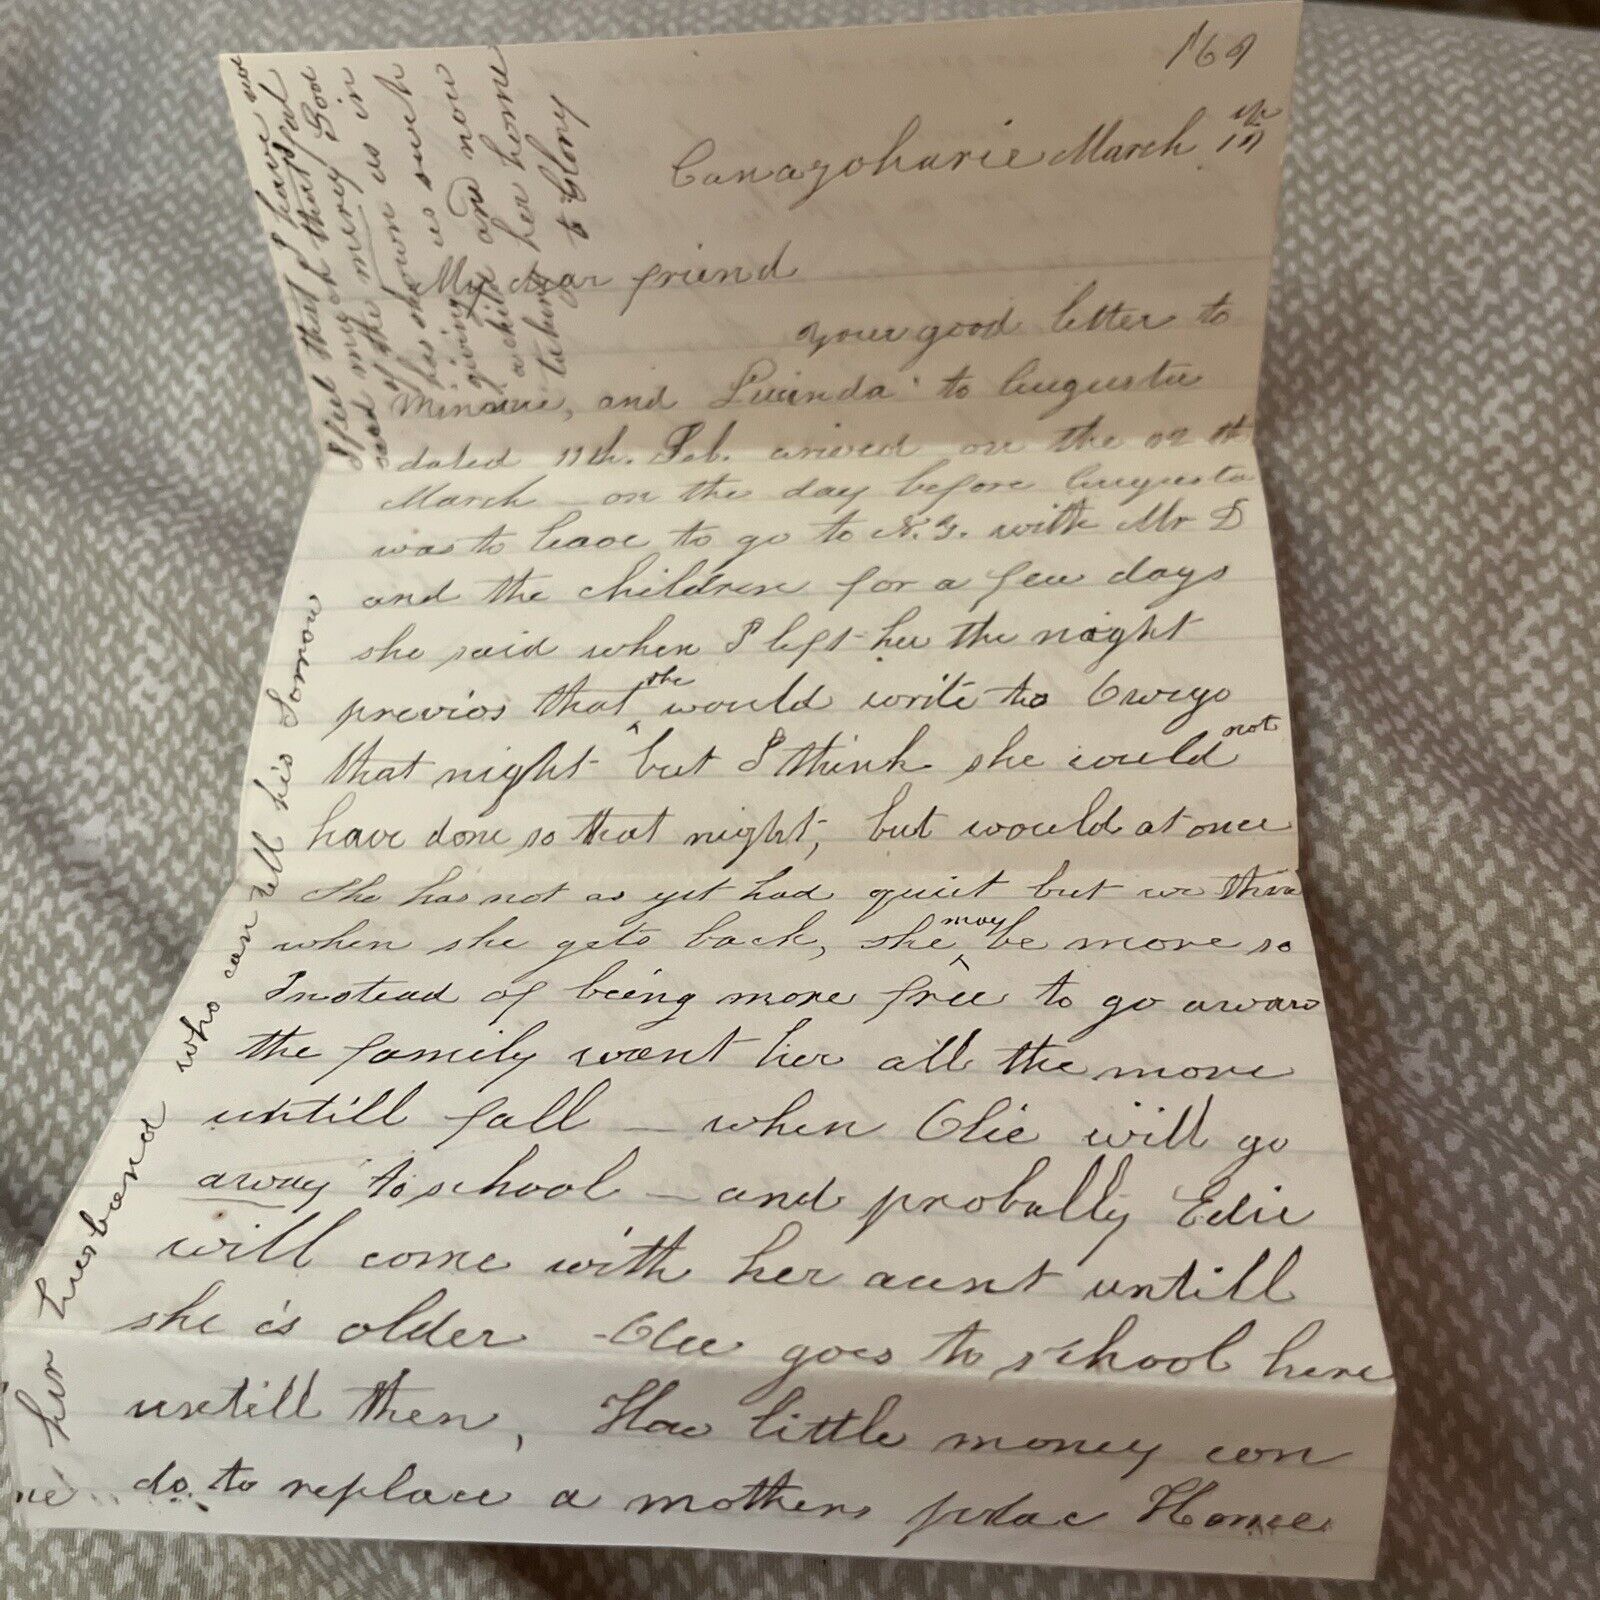 169
Canazoharie March 17th
My dear friend
your good letter to
Minnie, and Lucinda' to Augusta
dated 11th. Feb. arived on the 02th
March - on the day before Augusta
was to leave to go to N.Y. with Mr D
and the children for a few days
she said when I left her the night
previos that she would write to Owego
that night but I think she could not
have done so that night, but would at once
She has not as yet had quiet but we think
when she gets back, she may be more so
Instead of being more free to go away
the family want her all the more
untill fall - when Olie will go
away to school - and probully Edie
will come with her aunt untill
she is older - Olie goes to school here
untill then, How little money can
do to replace a mothers place Home
her husband who can tell his Sorrow
I feel that I have not
used my
of the mercy God
has shown us in
giving us such
a child and now
taking her home
to Glory